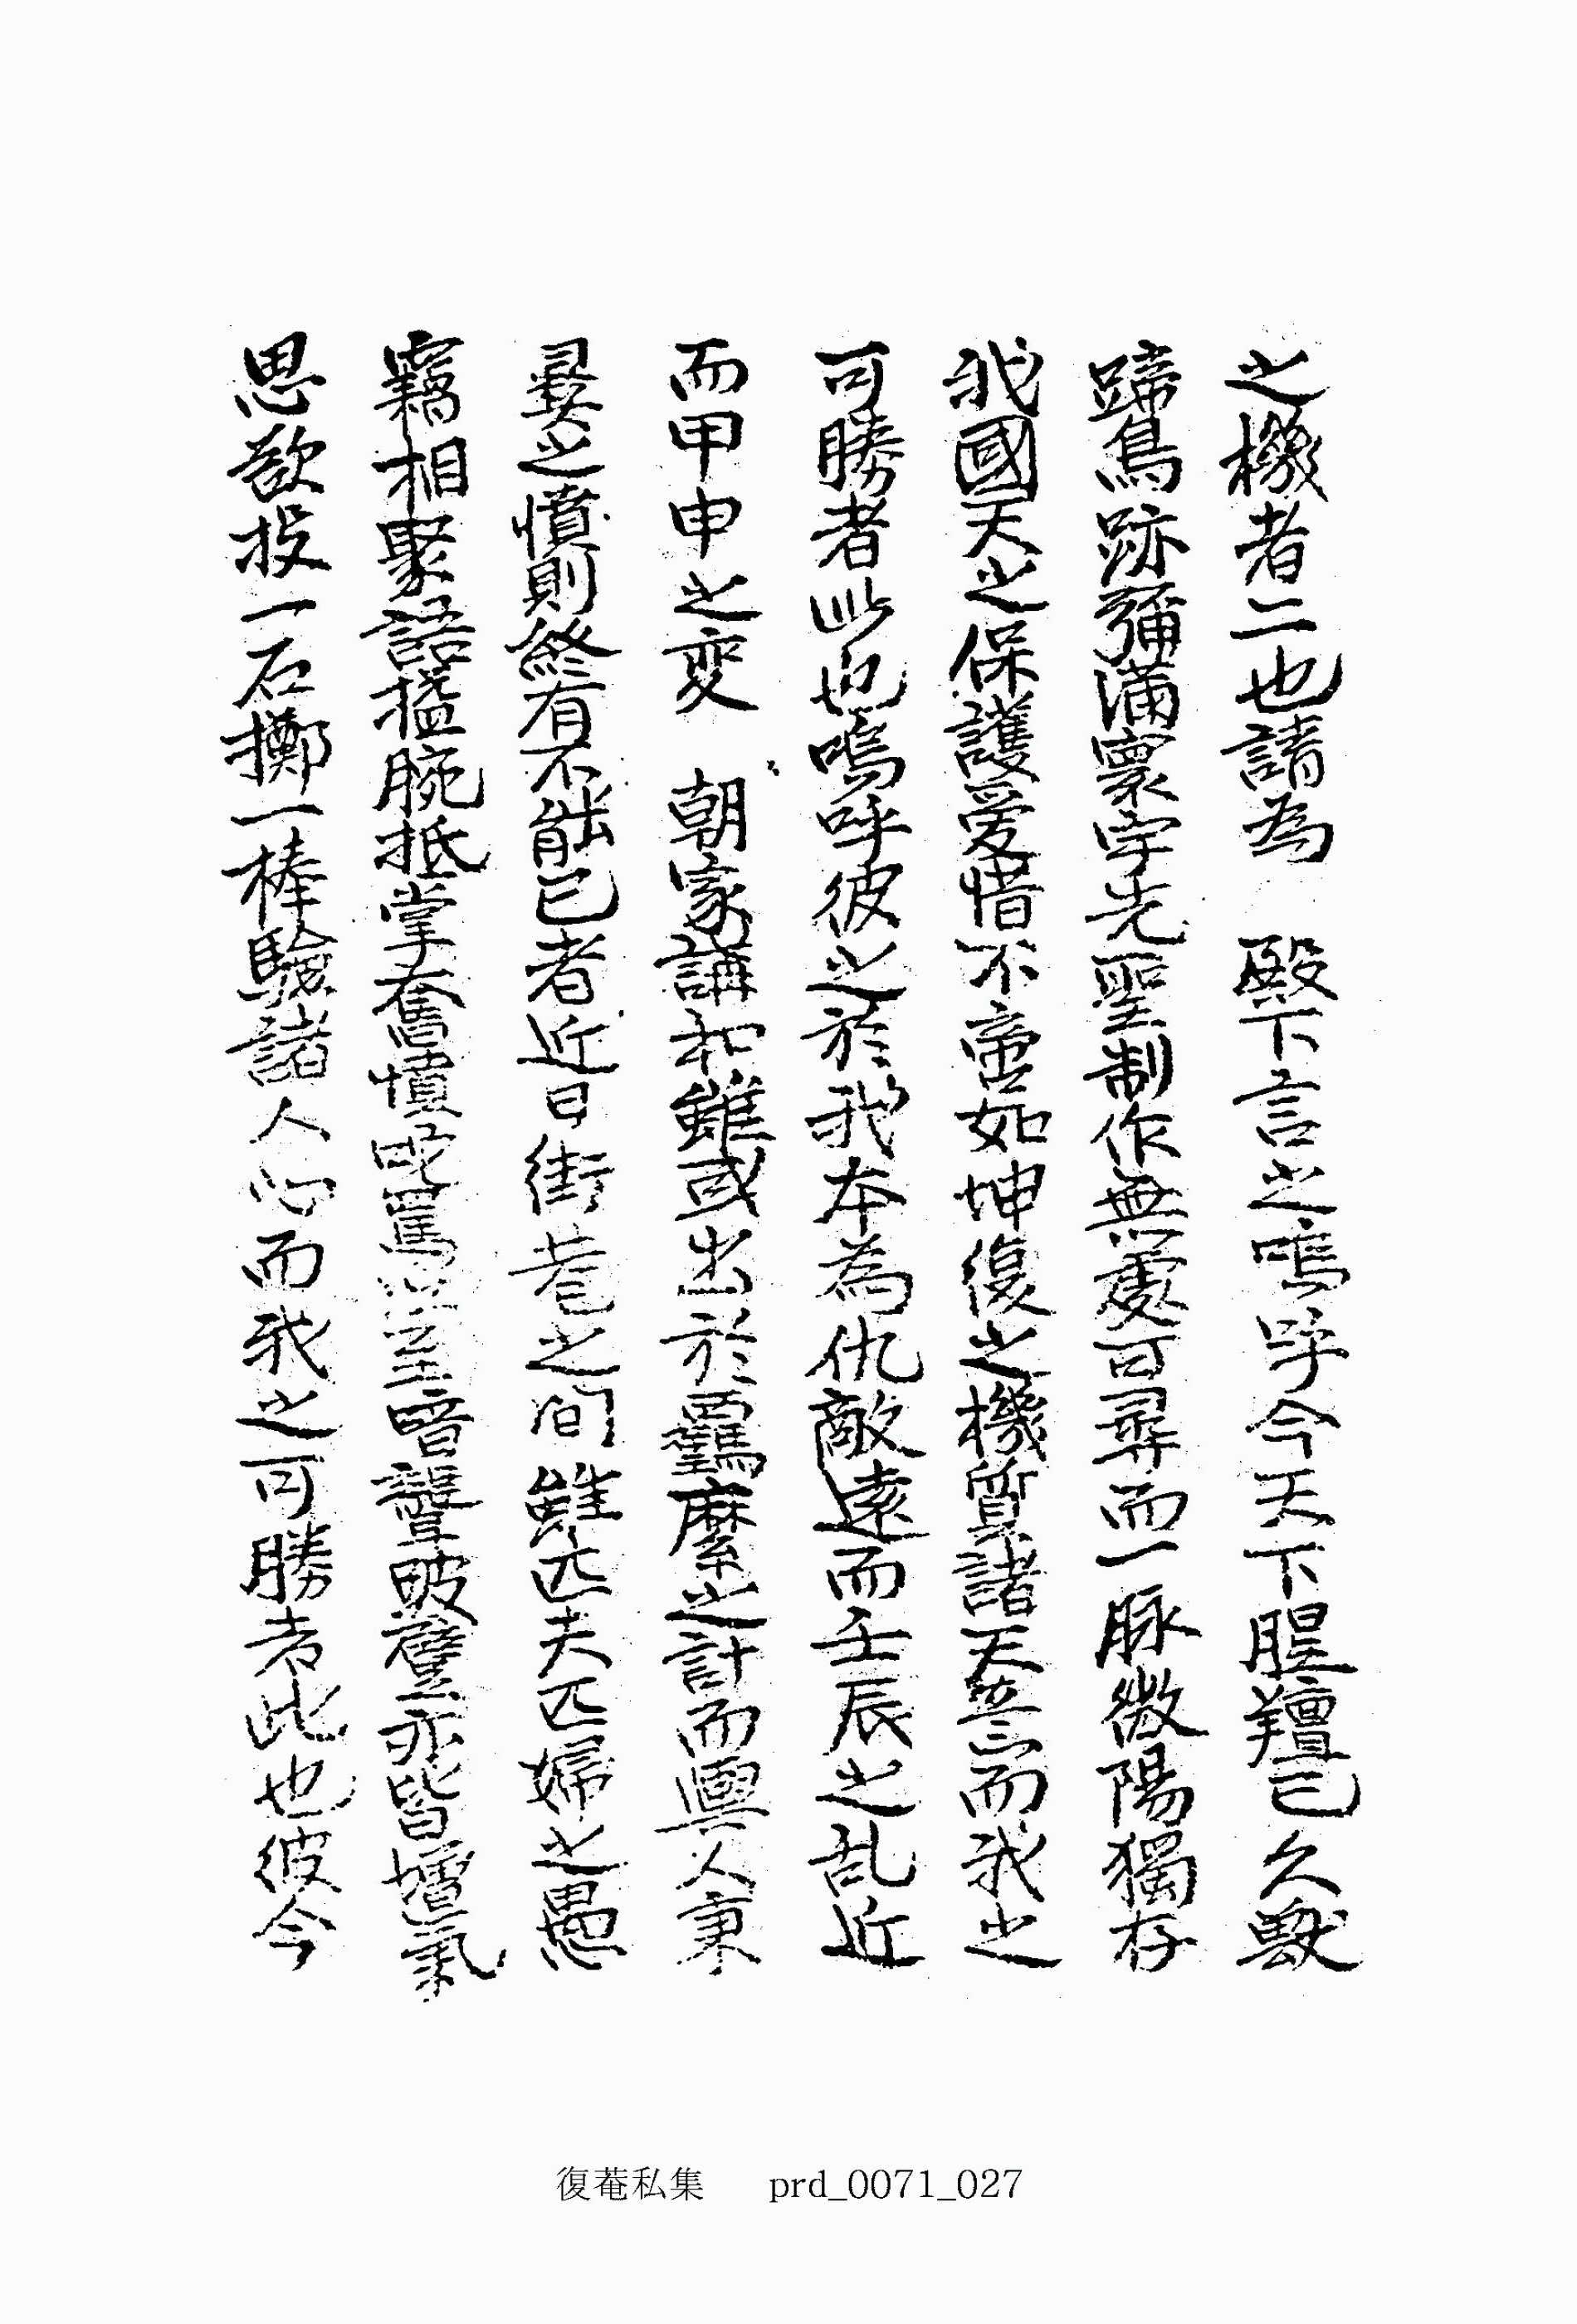 之機者二也請為 殿下言之嗚呼今天下腥羶已久獸
蹄鳥跡彌滿寰宇先聖制作無處可尋而一脉微陽獨存
我國天之保護愛惜不啻如坤復之機質諸天雲而我之
可勝者此也嗚呼彼之於我本為仇敵遠而壬辰之乱近
而甲申之変 朝家講和雖或出於羈縻之計而輿人秉
彛之憤則終有不能已者近日街巷之間雖匹夫匹婦之愚
竊相聚語搤腕抵掌奮憤叱罵以至喑聾跛躄亦皆增氣
思欲投一石擲一棒驗諸人心而我之可勝者此也彼今
復菴私集 prd_0071_027